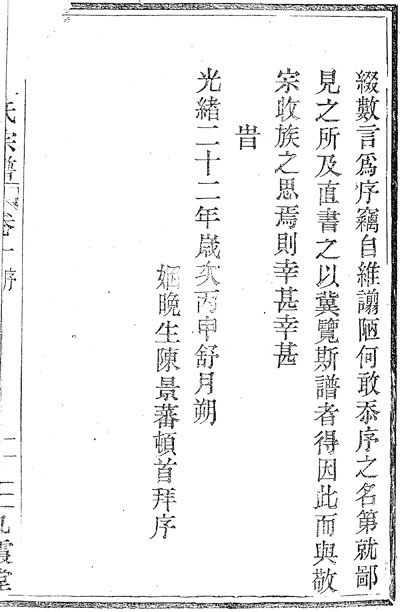 綴數言爲序竊自維譾陋何敢忝序之名第就鄙
見之所及直書之以冀覽斯譜者得因此而與敬
宗收族之思焉則幸甚幸甚
旹
光緒二十二年歲次丙申舒月朔
姻晚生陳景蕃頓首拜序
氏宗譜 卷一 序